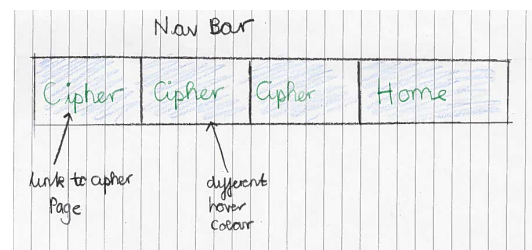 Nav Bar
Cipher Cipher Cipher Home
link to cipher
Page
different
hover
Colour